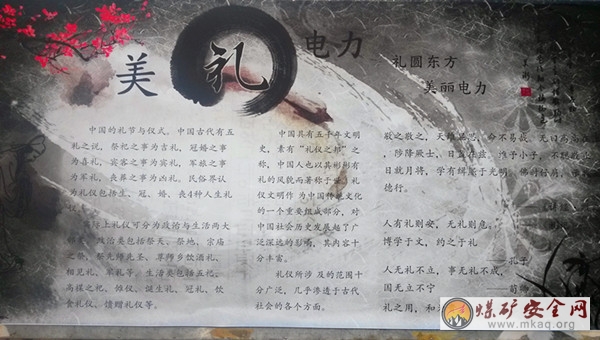 美礼电力
礼圆东方
美丽电力
中国的礼节与仪式，中国古代有五
礼之说，祭祀之事为吉礼，冠婚之事
为喜礼，宾客之事为宾礼，军旅之事
为军礼，丧葬之事为凶礼。民俗界认
为礼仪包括生、冠、婚、丧4种人生礼
际上礼仪可分为政治与生活两大
政治类包括祭天、祭地、宗庙
之祭，祭先师先圣、尊师乡饮酒礼、
相见礼、军礼等。生活类包括五祀、
高禖之祀、傩仪、诞生礼、冠礼、饮
食礼仪、馈赠礼仪等。
中国具有五千年文明
史，素有“礼仪之邦”之
称，中国人也以其彬彬有
礼的风貌而著称于世。礼
仪文明作为中国传统文化
的一个重要组成部分，对
中国社会历史发展起了广
泛深远的影响，其内容十
分丰富。
礼仪所涉及的范围十
分广泛，几乎渗透于古代
社会的各个方面。
敬之敬之，天维显思，命不易哉。无曰高高
，陟降厥士，日监在兹。维予小子，不聪敬
日就月将，学有缉熙于光明。佛时仔肩，
德行。
人有礼则安，无礼则危。
博学于文，约之于礼
——孔子
人无礼不立，事无礼不成，
国无立不宁
——荀
礼之用，和
煤矿安全网
www.mkaq.org